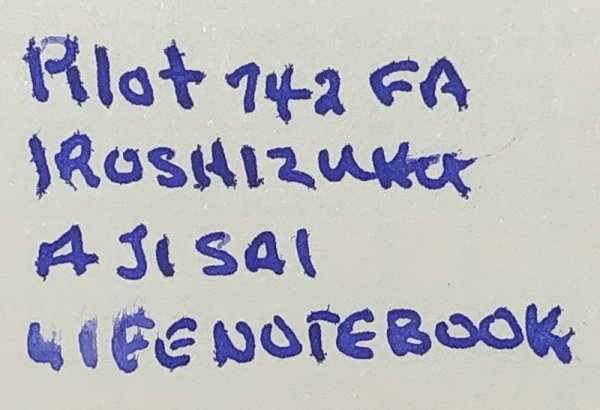 Pilot 742 FA
IROSHIZUKa
AJISAI
LIFENOTEBOOK